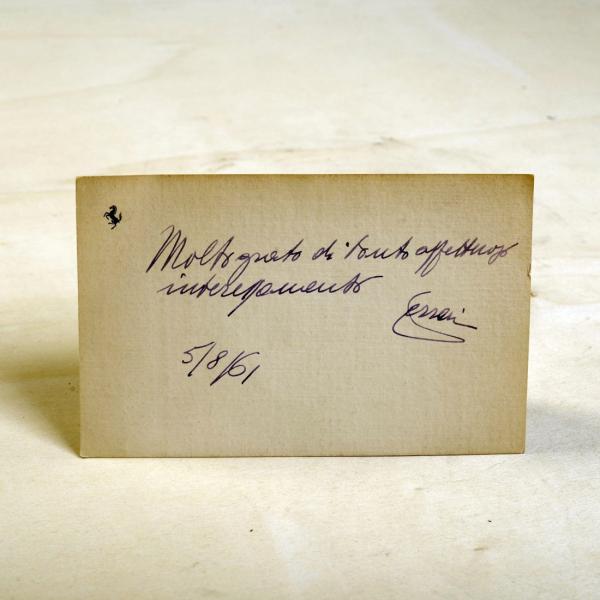 Molto grato di tanto affettuoso
interessamento
Ferrari
5/8/61